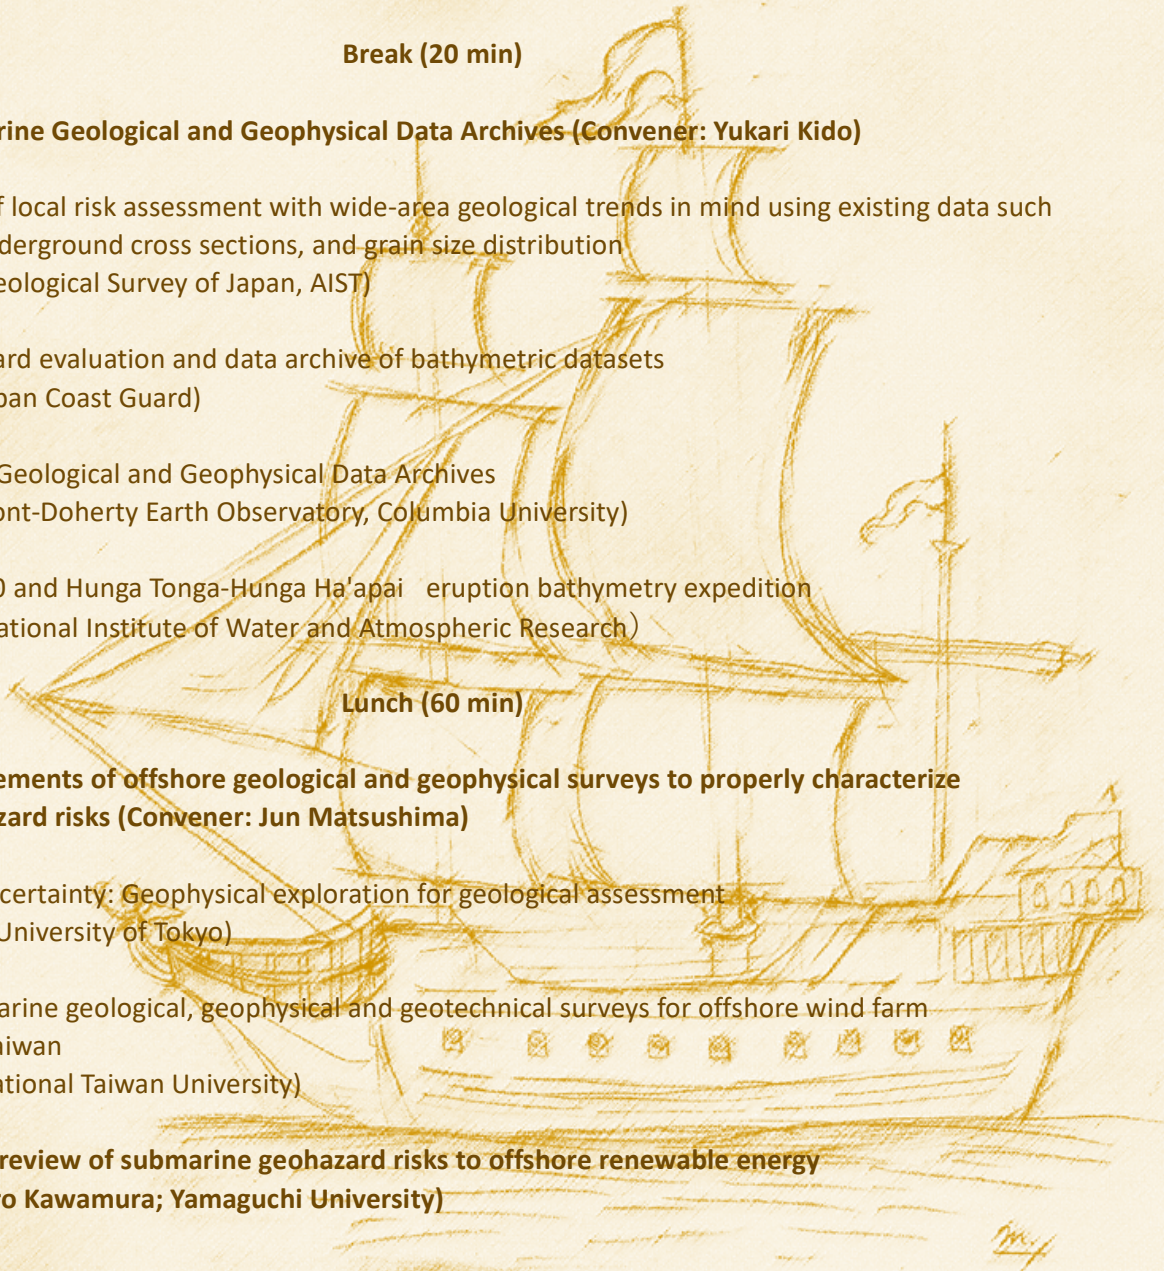 Break (20 min)
rine Geological and Geophysical Data Archives (Convener: Yukari Kido)
f local risk assessment with wide-area geological trends in mind using existing data such
derground cross sections, and grain size distribution
eological Survey of Japan, AIST)
ard evaluation and data archive of bathymetric datasets
pan Coast Guard)
Geological and Geophysical Data Archives
ont-Doherty Earth Observatory, Columbia University)
0 and Hunga Tonga-Hunga Ha'apai eruption bathymetry expedition
ational Institute of Water and Atmospheric Research）
Lunch (60 min)
ements of offshore geological and geophysical surveys to properly characterize
zard risks (Convener: Jun Matsushima)
certainty: Geophysical exploration for geological assessment
University of Tokyo)
arine geological, geophysical and geotechnical surveys for offshore wind farm
aiwan
ational Taiwan University)
review of submarine geohazard risks to offshore renewable energy
ro Kawamura; Yamaguchi University)